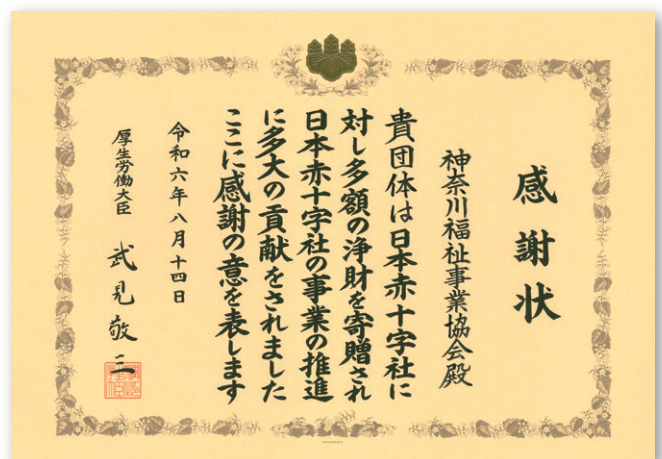 感謝状
神奈川福祉事業協会殿
貴団体は日本赤十字社に
対し多額の浄財を寄贈され
日本赤十字社の事業の推進
に多大の貢献をされました
ここに感謝の意を表します
令和六年八月十四日
厚生労働大臣 武見敬三